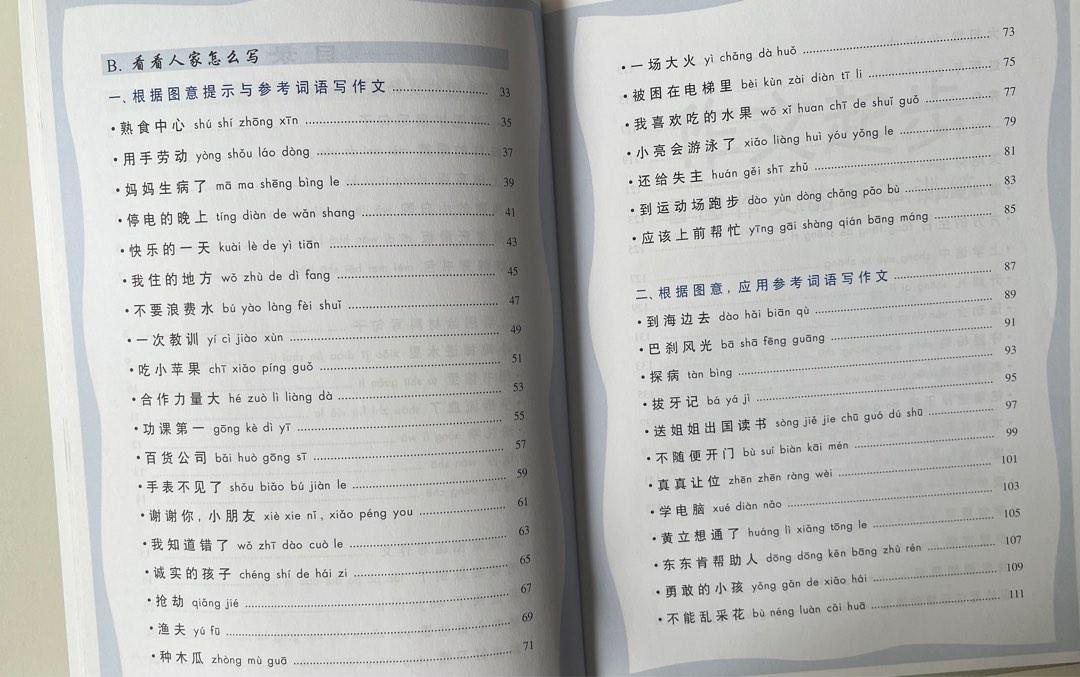 B. 看看人家怎么写
一、根据图意提示与参考词语写作文 33
• 熟食中心 shú shí zhōng xīn 35
• 用手劳动 yòng shǒu láo dòng 37
• 妈妈生病了 mā ma shēng bìng le 39
• 停电的晚上 tíng diàn de wǎn shang 41
• 快乐的一天 kuài lè de yì tiān 43
• 我住的地方 wǒ zhù de dì fang 45
• 不要浪费水 bú yào làng fèi shuǐ 47
• 一次教训 yí cì jiào xùn 49
• 吃小苹果 chī xiǎo píng guǒ 51
• 合作力量大 hé zuò lì liàng dà 53
• 功课第一 gōng kè dì yī 55
• 百货公司 bǎi huò gōng sī 57
• 手表不见了 shǒu biǎo bú jiàn le 59
• 谢谢你，小朋友 xiè xie nǐ, xiǎo péng you 61
• 我知道错了 wǒ zhī dào cuò le 63
• 诚实的孩子 chéng shí de hái zi 65
• 抢劫 qiǎng jié 67
• 渔夫 yú fū 69
• 种木瓜 zhòng mù guā 71
• 一场大火 yì chǎng dà huǒ 73
• 被困在电梯里 bèi kùn zài diàn tī li 75
• 我喜欢吃的水果 wǒ xǐ huan chī de shuǐ guǒ 77
• 小亮会游泳了 xiǎo liàng huì yóu yǒng le 79
• 还给失主 huán gěi shī zhǔ 81
• 到运动场跑步 dào yùn dòng chǎng pǎo bù 83
• 应该上前帮忙 yīng gāi shàng qián bāng máng 85
二、根据图意，应用参考词语写作文 87
• 到海边去 dào hǎi biān qù 89
• 巴刹风光 bā shā fēng guāng 91
• 探病 tàn bìng 93
• 拔牙记 bá yá jì 95
• 送姐姐出国读书 sòng jiě jie chū guó dú shū 97
• 不随便开门 bù suí biàn kāi mén 99
• 真真让位 zhēn zhēn ràng wèi 101
• 学电脑 xué diàn nǎo 103
• 黄立想通了 huáng lì xiǎng tōng le 105
• 东东肯帮助人 dōng dōng kěn bāng zhù rén 107
• 勇敢的小孩 yǒng gǎn de xiǎo hái 109
• 不能乱采花 bù néng luàn cǎi huā 111